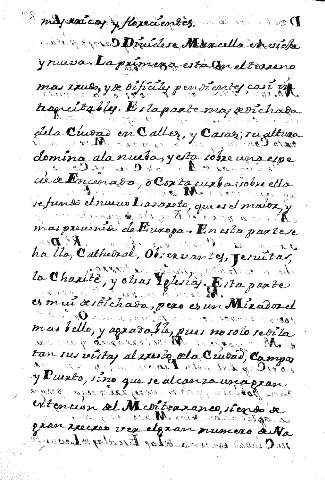 mas ricos y florecientes.
Dividese Marcella en vieja
y nueva. La primera esta en el terreno
mas arduo, y de dificiles pendientes casi in
transitables. Es la parte mas desdichada
de la Ciudad en Calles, y Casas; su altura
domina a la nueba, y esta sobre una espe
cie de Ensenada, o Corta curba: sobre ella
se fundó el nuevo Lazareto, que es el maior, y
mas prevenido de Europa. En esta parte se
halla, Cathedral, Observantes, Jesuitas,
la Charité, y otras Yglesias. Esta parte
es mui desdichada, pero es un Mirador el
mas bello, y agradable, pues no solo se dila
tan sus vistas al resto de la Ciudad, Campos
y Puerto, sino que se alcanza una gran
extencion del Mediterraneo, siendo de
gran recreo ver el gran numero de Na